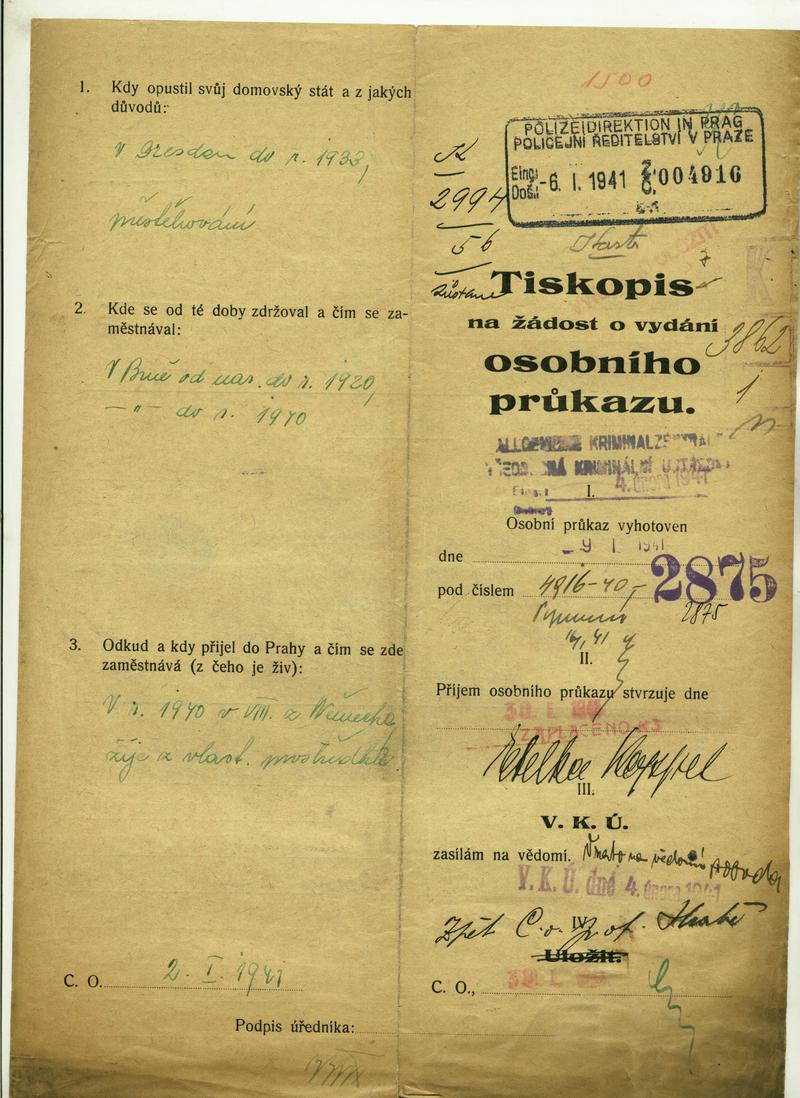 1. Kdy opustil svůj domovský stát a z jakých
důvodů:
V Dresden do r. 1938,
přestěhování
2. Kde se od té doby zdržoval a čím se za-
městnával:
V Brně od nar. do r. 1920,
—"— do r. 1940
3. Odkud a kdy přijel do Prahy a čím se zde
zaměstnává (z čeho je živ):
V r. 1940 v VIII. z Německa
žije z vlast. prostředků
C. O. 2. I. 1941
Podpis úředníka:
1500
POLIZEIDIREKTION IN PRAG
POLICEJNÍ ŘEDITELSTVÍ V PRAZE
Eing.
Došl. -6. I. 1941 004916
K
2994
56
Tiskopis
na žádost o vydání
3862
1
osobního
průkazu.
ALLGEMEINE KRIMINALZENTRALE
VŠEOBECNÁ KRIMINÁLNÍ ÚSTŘEDNA
4. února 1941
I.
Osobní průkaz vyhotoven
dne 9 I 1941
pod číslem 4916-40
2875
2875
II.
Příjem osobního průkazu stvrzuje dne
30. I. 1941
ZAPLACENO K 5
Etelka Keppel
III.
V. K. Ú.
zasílám na vědomí.
V. K. Ú. dne 4. února 1941
Zpět C. o.
IV.
Uložit.
C. O.,